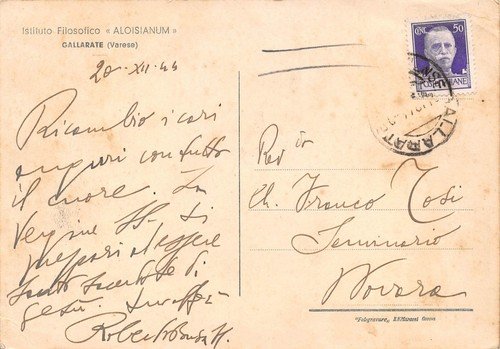 Istituto Filosofico « ALOISIANUM »
GALLARATE (Varese)
20-XII-44
Ricambio i cari
auguri con tutto
il cuore. La
Vergine SS. ti
prepari ad essere
santo Sacerdote di
Gesù.
Roberto Busa SJ
CENT. 50
POSTE ITALIANE
GALLARATE
Rev.
Ch. Franco Tosi
Seminario
Novara
"Fotogravure,,